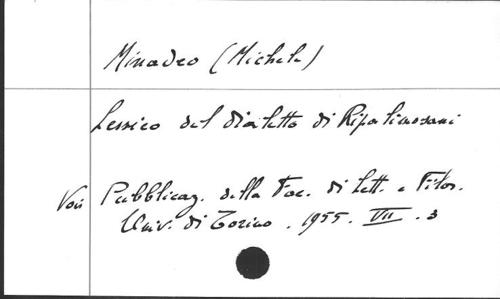 Minadeo (Michele)
Lessico del dialetto di Ripalimosani
Voir Pubblicaz. della Fac. di Lett. e Filos.
Univ. di Torino. 1955. VII. 3